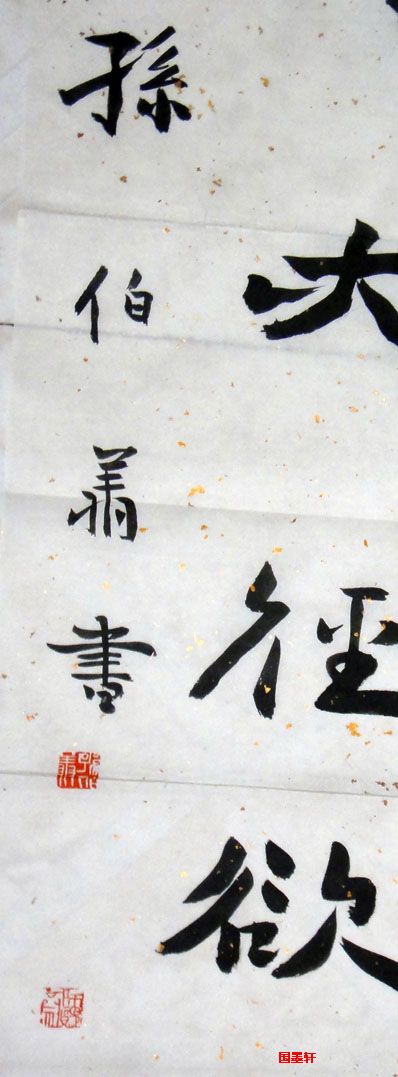 大径欲
孫伯翔書
国墨轩